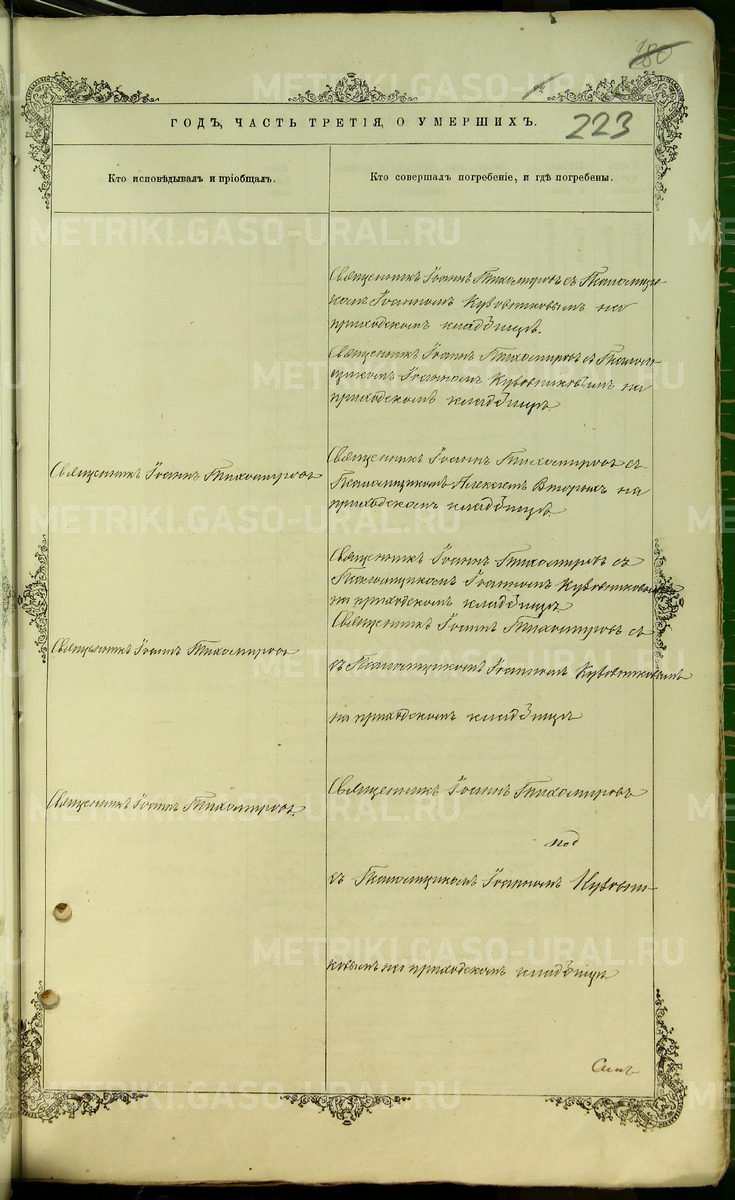 180
223
ГОДЪ, ЧАСТЬ ТРЕТІЯ, О УМЕРШИХЪ.
Кто исповѣдывалъ и пріобщалъ.
Кто совершалъ погребеніе, и гдѣ погребены.
Священникъ Іоаннъ Тихомировъ съ Псаломщи-
комъ Іоанномъ Кубовниковымъ на
приходскомъ кладбищѣ.
Священникъ Іоаннъ Тихомировъ съ Псалом-
щикомъ Іоанномъ Кубовниковымъ на
приходскомъ кладбищѣ
Священникъ Іоаннъ Тихомировъ
Священникъ Іоаннъ Тихомировъ съ
Псаломщикомъ Алексѣемъ Вторыхъ на
приходскомъ кладбищѣ
Священникъ Іоаннъ Тихомировъ съ
Псаломщикомъ Іоанномъ Кубовниковымъ
на приходскомъ кладбищѣ
Священникъ Іоаннъ Тихомировъ
Священникъ Іоаннъ Тихомировъ съ
съ Псаломщикомъ Іоанномъ Кубовниковымъ
на приходскомъ кладбищѣ
Священникъ Іоаннъ Тихомировъ.
Священникъ Іоаннъ Тихомировъ
съ Псаломщикомъ Іоанномъ Кубовни-
ковымъ на приходскомъ кладбищѣ
METRIKI.GASO-URAL.RU